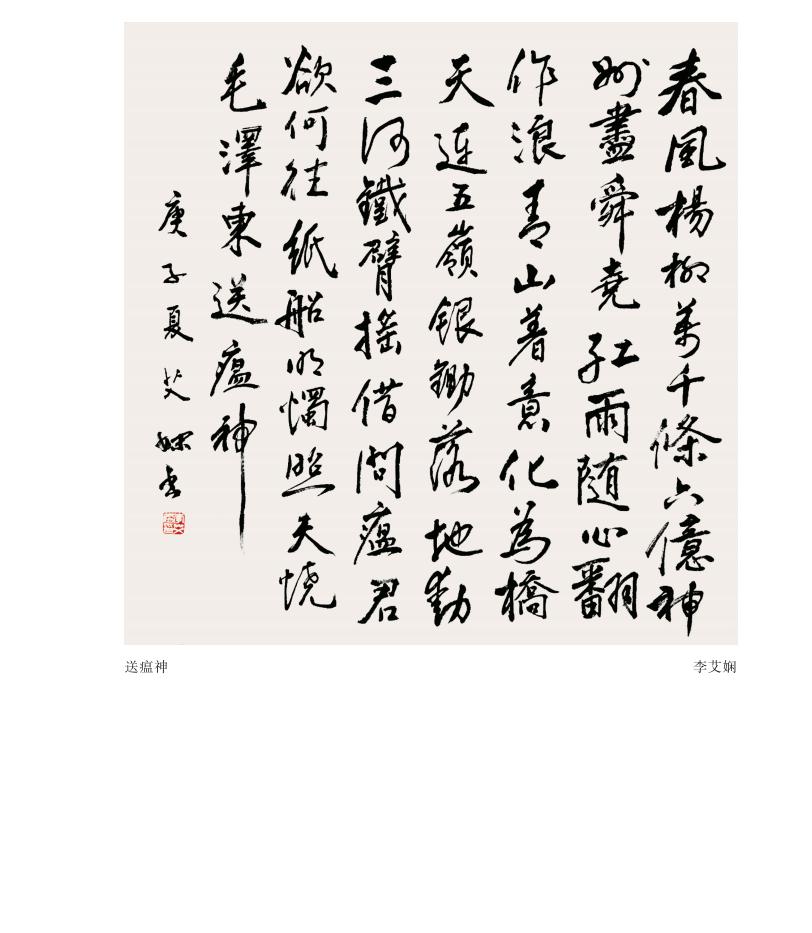 春風楊柳萬千條六億神
州盡舜堯紅雨随心翻
作浪青山着意化為橋
天連五嶺銀鋤落地動
三河鐵臂搖借問瘟君
欲何往紙船明燭照天燒
毛澤東送瘟神
庚子夏艾嫻書
送瘟神
李艾娴